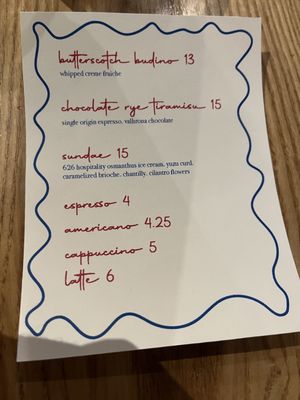 butterscotch budino 13
whipped creme fraiche
chocolate rye tiramisu 15
single origin espresso, valhrona chocolate
sundae 15
626 hospitality osmanthus ice cream, yuzu curd,
caramelized brioche, chantilly, cilantro flowers
espresso 4
americano 4.25
cappuccino 5
latte 6